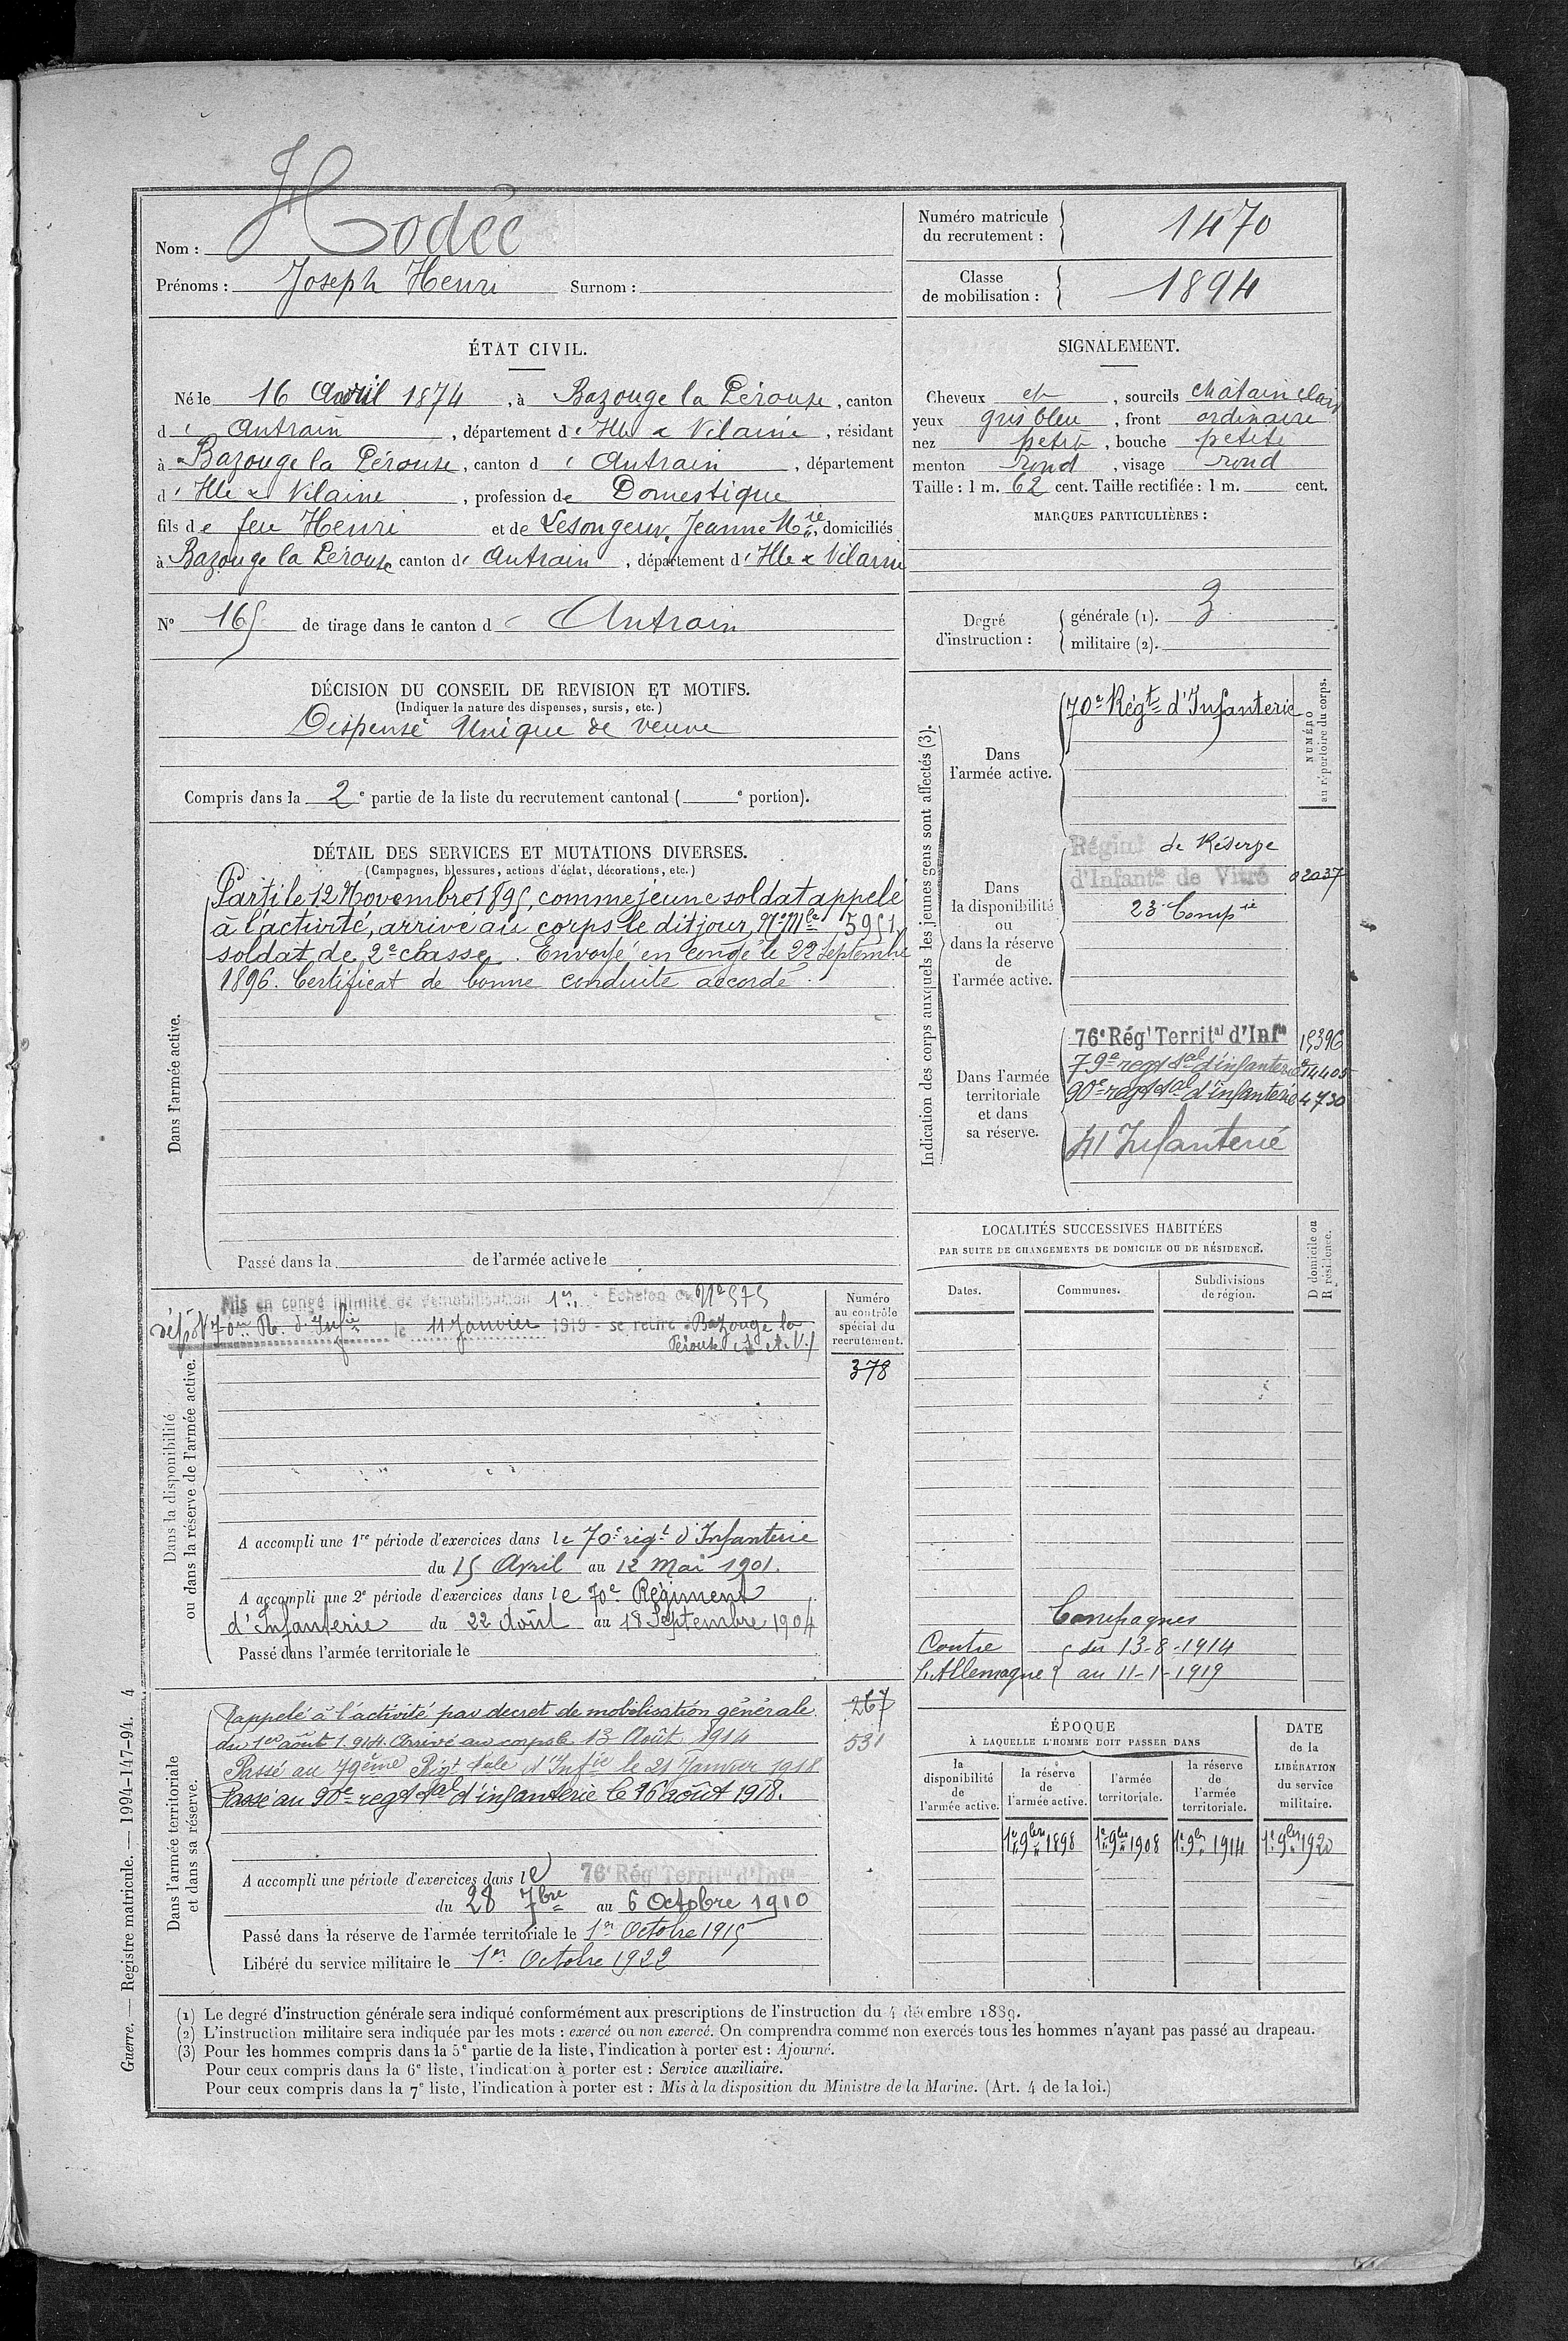 Nom : Hodée
Prénoms : Joseph Henri Surnom :
Numéro matricule du recrutement : 1470
Classe de mobilisation : 1894
ÉTAT CIVIL.
Né le 16 Avril 1874, à Bazouge la Pérouse, canton
d' Antrain, département d' Ille & Vilaine, résidant
à Bazouge la Pérouse, canton d' Antrain, département
d' Ille & Vilaine, profession de Domestique
fils de feu Henri et de Lesongeux, Jeanne Mie, domiciliés
à Bazouge la Pérouse canton d' Antrain, département d' Ille & Vilaine
N° 165 de tirage dans le canton d' Antrain
SIGNALEMENT.
Cheveux et, sourcils châtain clair
yeux gris bleu, front ordinaire
nez petit, bouche petite
menton rond, visage rond
Taille : 1 m. 62 cent. Taille rectifiée : 1 m. cent.
MARQUES PARTICULIÈRES :
Degré d'instruction :
générale (1). 3
militaire (2).
DÉCISION DU CONSEIL DE REVISION ET MOTIFS.
(Indiquer la nature des dispenses, sursis, etc.)
Dispensé Unique de veuve
Compris dans la 2e partie de la liste du recrutement cantonal ( e portion).
DÉTAIL DES SERVICES ET MUTATIONS DIVERSES.
(Campagnes, blessures, actions d'éclat, décorations, etc.)
Dans l'armée active.
Parti le 12 Novembre 1895, comme jeune soldat appelé
à l'activité, arrivé au corps le dit jour, N° Mle 5951,
soldat de 2e classe. Envoyé en congé le 22 Septembre
1896. Certificat de bonne conduite accordé.
Passé dans la de l'armée active le
Indication des corps auxquels les jeunes gens sont affectés (3).
NUMÉRO au répertoire du corps.
Dans l'armée active.
70e Régt d'Infanterie
Dans la disponibilité ou dans la réserve de l'armée active.
Régimt de Réserve
d'Infantie de Vitré 02037
23e Compie
Dans l'armée territoriale et dans sa réserve.
76e Régt Territal d'Infie 15396
79e regt tal d'infanterie 14405
90e regt tal d'infanterie 4730
41 Infanterie
LOCALITÉS SUCCESSIVES HABITÉES
PAR SUITE DE CHANGEMENTS DE DOMICILE OU DE RÉSIDENCE.
Dates. Communes. Subdivisions de région.
D domicile ou R résidence.
Campagnes
Contre du 13-8-1914
L'Allemagne au 11-1-1919
Dans la disponibilité ou dans la réserve de l'armée active.
Mis en congé illimité de démobilisation 1er Echelon N° 575
dépôt 70me R. d'Infie le 11 Janvier 1919 - se retire à Bazouge la
Pérouse (I. et. V.)
Numéro au contrôle spécial du recrutement.
378
A accompli une 1re période d'exercices dans le 70e régt d'Infanterie
du 15 Avril au 12 Mai 1901.
A accompli une 2e période d'exercices dans le 70e Régiment
d'Infanterie du 22 Août au 18 Septembre 1904
Passé dans l'armée territoriale le
Dans l'armée territoriale et dans sa réserve.
Rappelé à l'activité par decret de mobilisation générale
du 1er août 1914. Arrivé au corps le 13 Août 1914
Passé au 79ème Régt tale d'Infie le 21 Janvier 1918
Passé au 90e regt tal d'infanterie le 16 août 1918.
267
531
A accompli une période d'exercices dans le 76e Régt Territal d'Infie
du 28 7bre au 6 Octobre 1910
Passé dans la réserve de l'armée territoriale le 1er Octobre 1915
Libéré du service militaire le 1er Octobre 1922
ÉPOQUE
À LAQUELLE L'HOMME DOIT PASSER DANS
la disponibilité de l'armée active.
la réserve de l'armée active.
l'armée territoriale.
la réserve de l'armée territoriale.
DATE de la LIBÉRATION du service militaire.
1er 9bre 1898 1er 9bre 1908 1er 9bre 1914 1er 9bre 1920
(1) Le degré d'instruction générale sera indiqué conformément aux prescriptions de l'instruction du 4 décembre 1889.
(2) L'instruction militaire sera indiquée par les mots : exercé ou non exercé. On comprendra comme non exercés tous les hommes n'ayant pas passé au drapeau.
(3) Pour les hommes compris dans la 5e partie de la liste, l'indication à porter est : Ajourné.
Pour ceux compris dans la 6e liste, l'indication à porter est : Service auxiliaire.
Pour ceux compris dans la 7e liste, l'indication à porter est : Mis à la disposition du Ministre de la Marine. (Art. 4 de la loi.)
Guerre. — Registre matricule. — 1994-147-94. 4